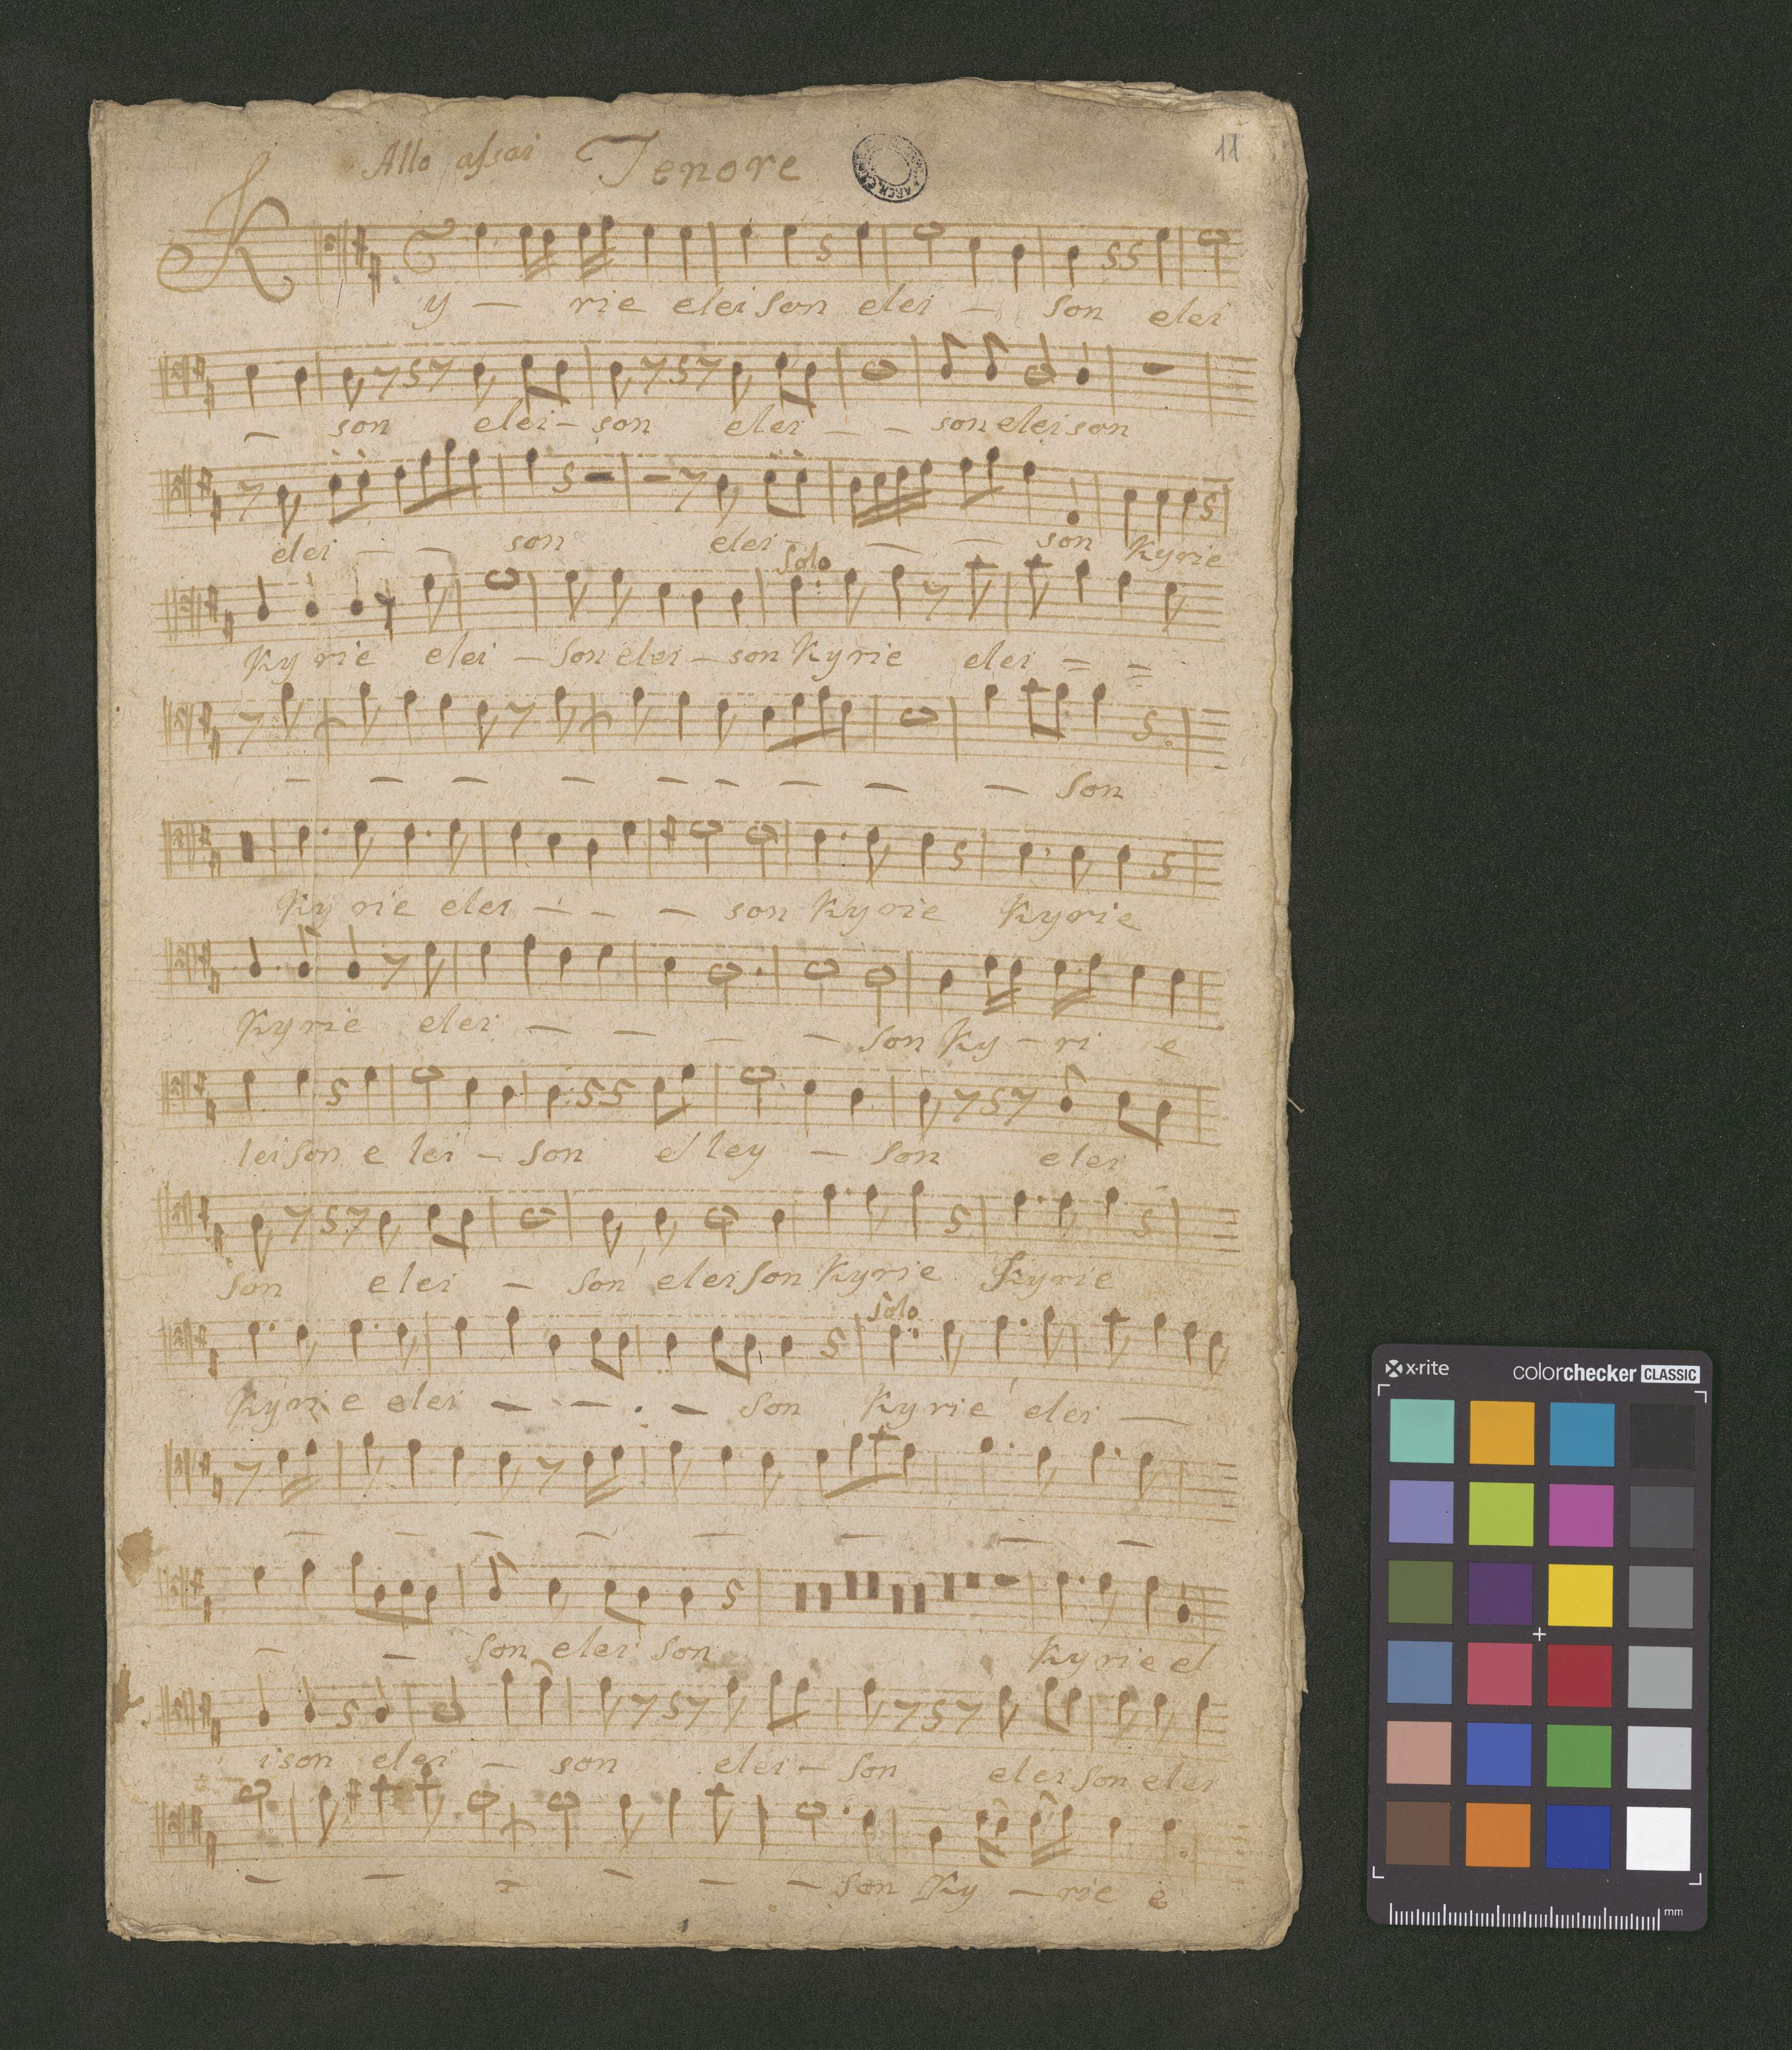 Allo assai Tenore 11
Ky — rie eleison elei — son elei
— son elei — son elei — — son eleison
elei — — son elei — — — son Kyrie
Solo
Kyrie elei — son elei — son Kyrie elei = =
— — — — — — — — — son
Kyrie elei — — — son Kyrie Kyrie
Kyrie elei — — — — son Ky — ri e
leison e lei — son e ley — son elei
son elei — son eleison Kyrie Kyrie
Solo
Kyrie elei — — . — son Kyrie elei —
— — — — — — — —
— — son elei son Kyrie el
ison elei — son elei — son elei son elei
— — — — — — son Ky — rie e
x-rite colorchecker CLASSIC
mm